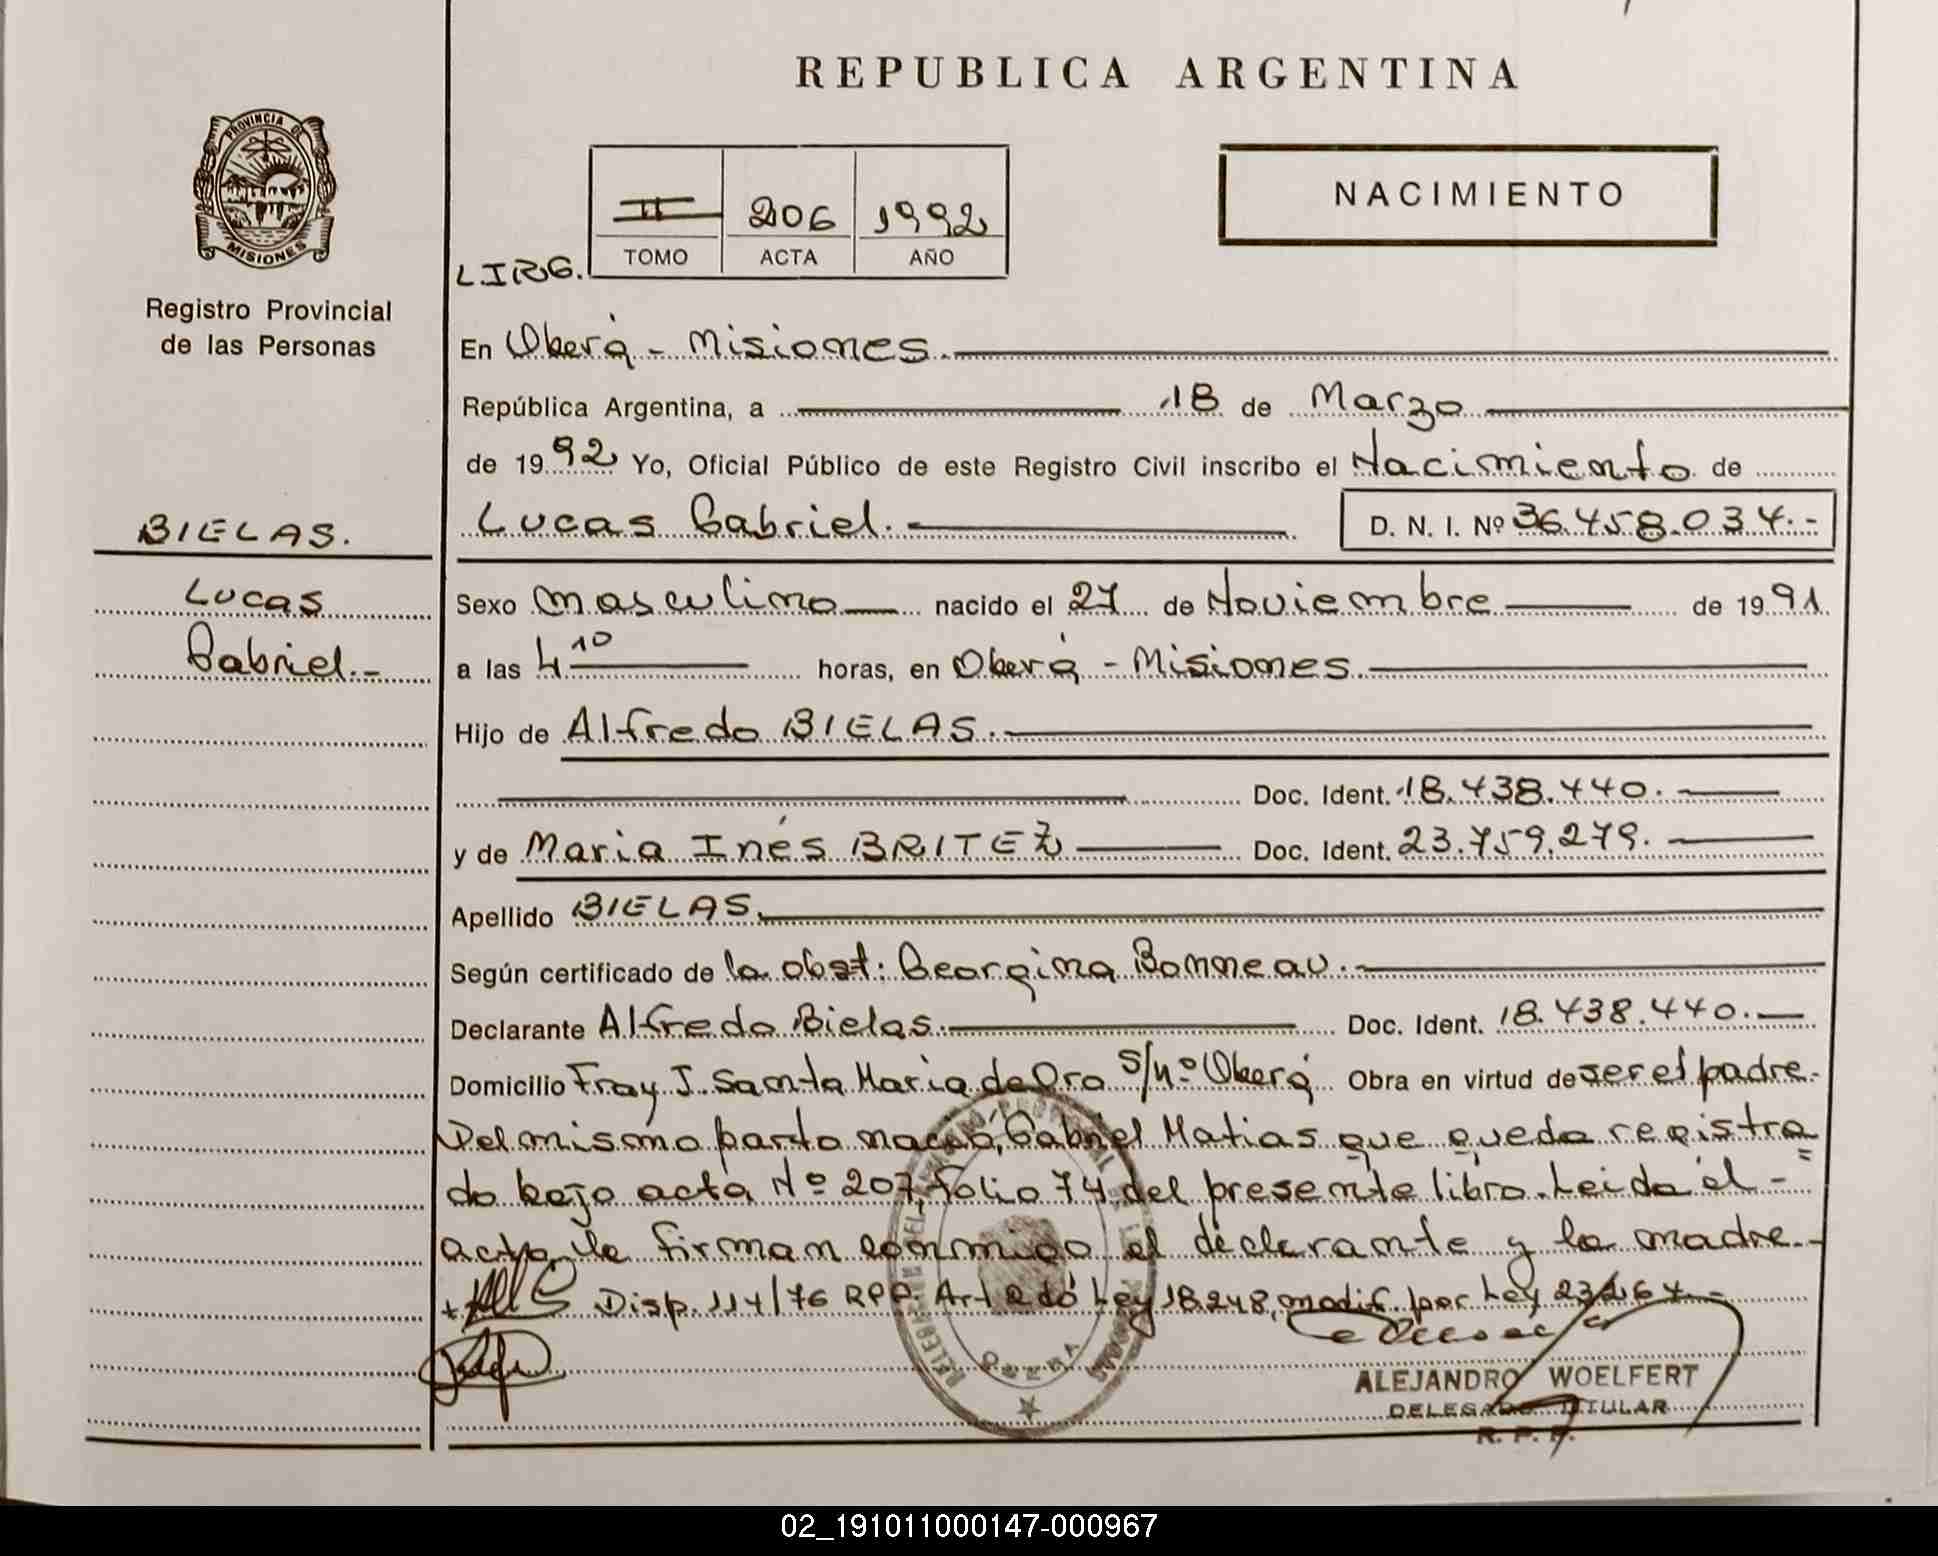 REPUBLICA ARGENTINA
PROVINCIA DE
MISIONES
Registro Provincial
de las Personas
II 206 1992
TOMO ACTA AÑO
NACIMIENTO
L.I.R.G.
En Oberá - Misiones.
República Argentina, a 18 de Marzo
de 1992 Yo, Oficial Público de este Registro Civil inscribo el Nacimiento de
Lucas Gabriel. D. N. I. Nº 36.458.034.-
BIELAS.
Lucas
Gabriel.-
Sexo masculino nacido el 27 de Noviembre de 1991
a las 4 10 horas, en Oberá - Misiones.
Hijo de Alfredo BIELAS.
Doc. Ident. 18.438.440.
y de Maria Inés BRITEZ Doc. Ident. 23.759.279.
Apellido BIELAS.
Según certificado de la obst: Georgina Bonneau.
Declarante Alfredo Bielas. Doc. Ident. 18.438.440.
Domicilio Fray J. Santa Maria de Oro s/nº Oberá Obra en virtud de ser el padre.
Del mismo parto nació, Gabriel Matias que queda registra
do bajo acta Nº 207, folio 74 del presente libro. Leida el -
acta, la firman conmigo el declarante y la madre.-
Disp. 114/76 RPP. Art 2do Ley 18.248, modif. por Ley 23.264.-
OBERA
ALEJANDRO WOELFERT
DELEGADO TITULAR
R. P. P.
02_191011000147-000967